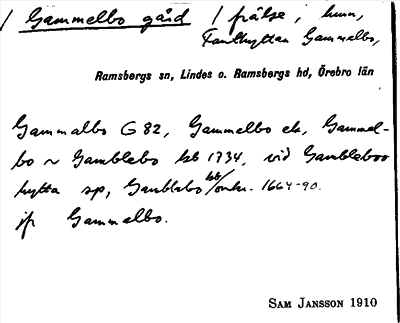 / Gammelbo gård / frälse, hmn,
Fanthyttan Gammelbo,
Ramsbergs sn, Lindes o. Ramsbergs hd, Örebro län
Gammalbo G 82, Gammelbo ek, Gammel-
bo ~ Gamblebo kb 1734, vid Gambleboo
hytta sp, Gamblebo kb/ 1664-90.
jf Gammalbo.
SAM JANSSON 1910